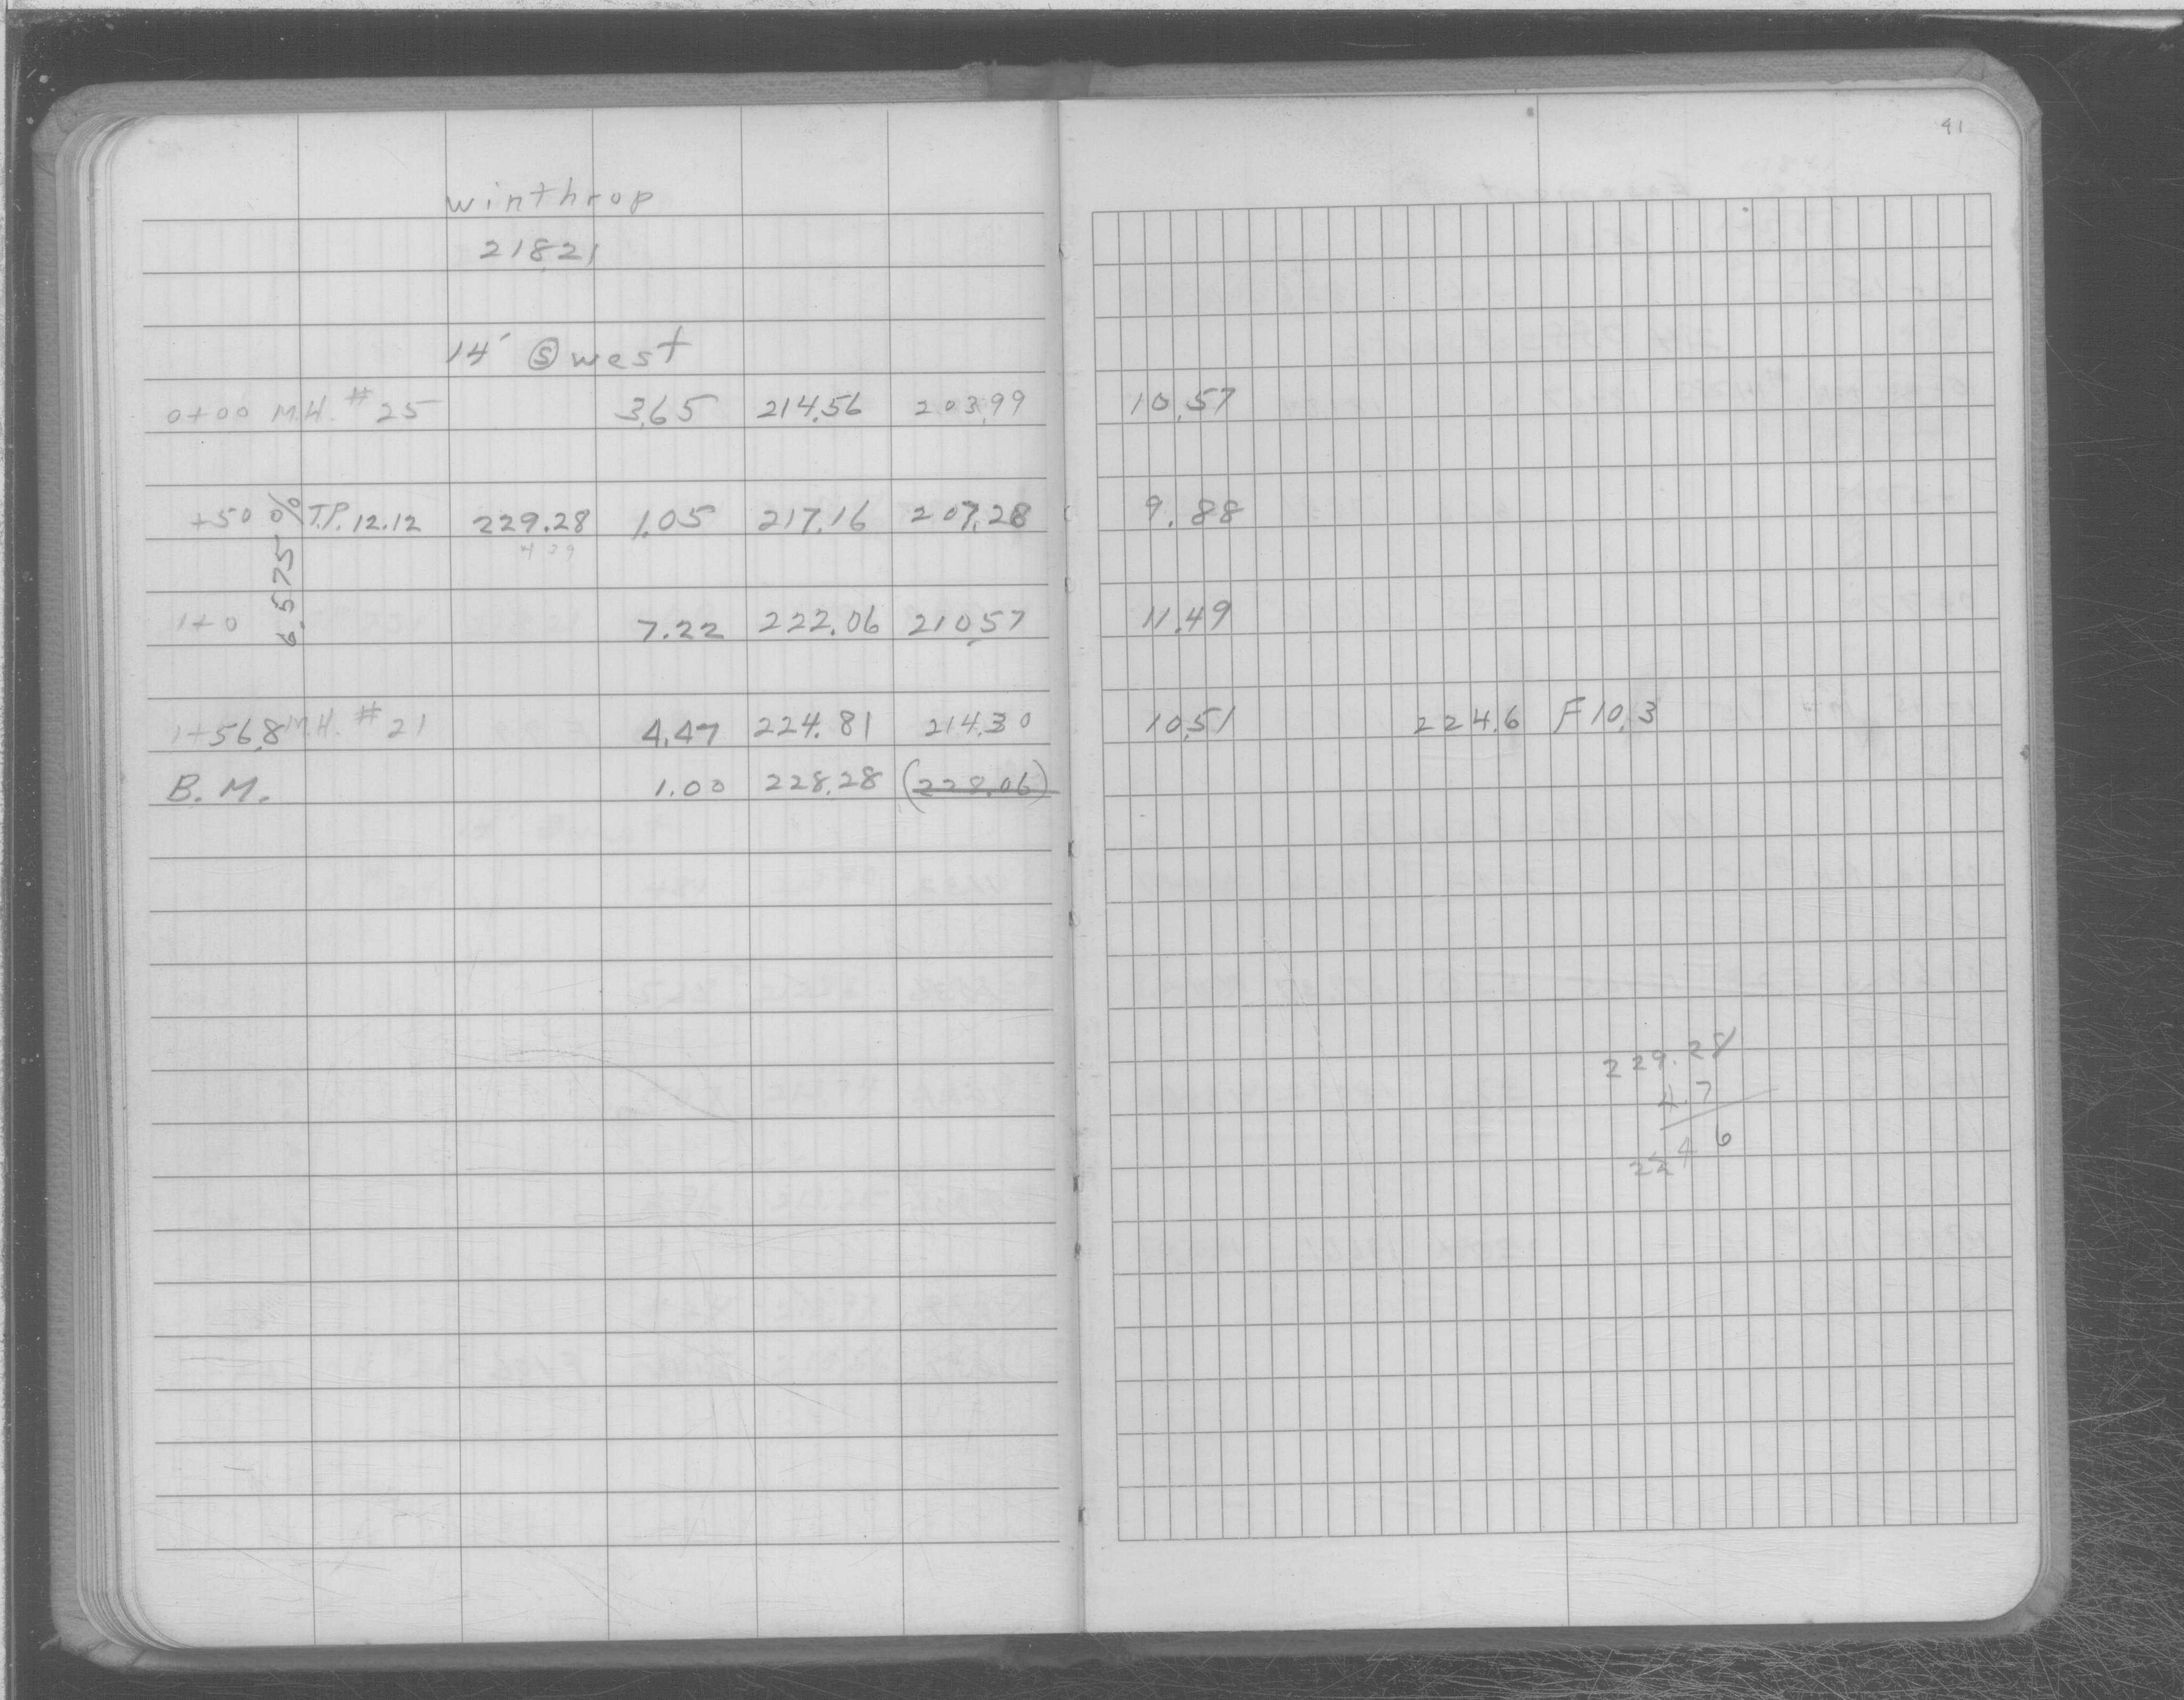 41
winthrop
218.21
14' Ⓢ west
0+00 M.H. #25 3.65 214.56 203.99 10.57
+50 T.P. 12.12 229.28 1.05 217.16 207.28 9.88
6.575%
1+0 7.22 222.06 210.57 11.49
1+56.8 M.H. #21 4.47 224.81 214.30 10.51 224.6 F 10.3
B.M. 1.00 228.28 (228.06)
229.28
4.7
224 6